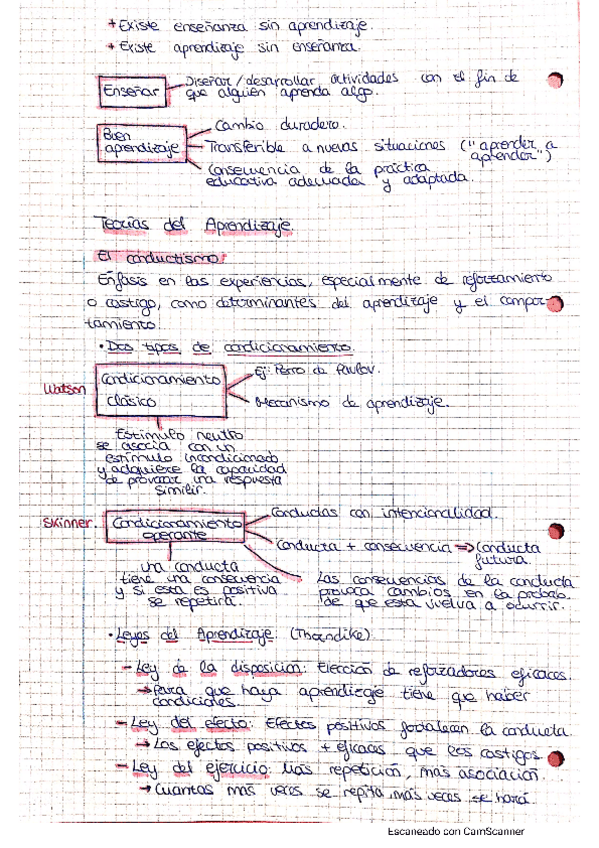 + Existe enseñanza sin aprendizaje.
+ Existe aprendizaje sin enseñanza.
Enseñar
Diseñar / desarrollar actividades con el fin de
que alguien aprenda algo.
Buen
aprendizaje
Cambio duradero.
Transferible a nuevas situaciones ("aprender a
aprender")
Consecuencia de la práctica
educativa adecuada y adaptada.
Teorías del Aprendizaje
El conductismo:
Énfasis en las experiencias, especialmente de reforzamiento
o castigo, como determinantes del aprendizaje y el compor-
tamiento.
• Dos tipos de condicionamiento.
Watson
Condicionamiento
clásico
Ej: Perro de Pavlov.
Mecanismo de aprendizaje.
Estímulo neutro
se asocia con un
estímulo incondicionado
y adquiere la capacidad
de provocar una respuesta
similar.
Skinner.
Condicionamiento
operante
Conductas con intencionalidad.
Conducta + consecuencia => Conducta
futura.
una conducta
tiene una consecuencia
y si esta es positiva
se repetirá.
Las consecuencias de la conducta
provoca cambios en la probab.
de que esta vuelva a ocurrir.
• Leyes del Aprendizaje (Thorndike)
- Ley de la disposición: Elección de reforzadores eficaces.
→ Para que haya aprendizaje tiene que haber
condiciones.
- Ley del efecto: Efectos positivos fortalecen la conducta.
→ Los efectos positivos + eficaces que los castigos.
- Ley del ejercicio: Más repetición, más asociación.
→ Cuantas más veces se repita, más veces se hará.
Escaneado con CamScanner